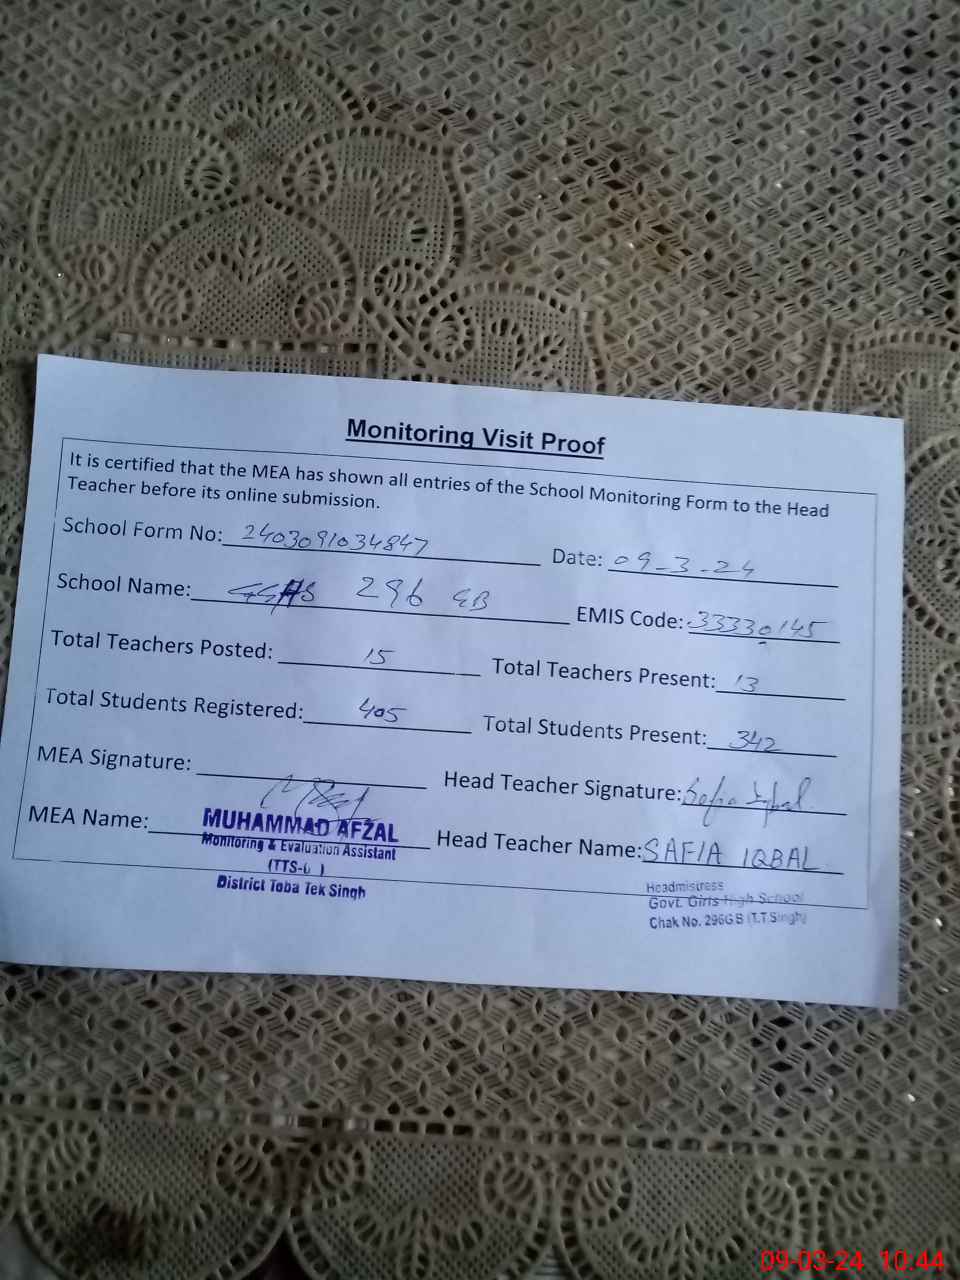 Monitoring Visit Proof
It is certified that the MEA has shown all entries of the School Monitoring Form to the Head
Teacher before its online submission.
School Form No: 2403091034847 Date: 09-3-24
School Name: GGHS 296 GB EMIS Code: 33330145
Total Teachers Posted: 15 Total Teachers Present: 13
Total Students Registered: 405 Total Students Present: 342
MEA Signature: Head Teacher Signature: Safia Iqbal
MEA Name: MUHAMMAD AFZAL Head Teacher Name: SAFIA IQBAL
Monitoring & Evaluation Assistant
District Toba Tek Singh
Headmistress
Govt. Girls High School
Chak No. 296G.B (T.T.Singh)
09-03-24 10:44